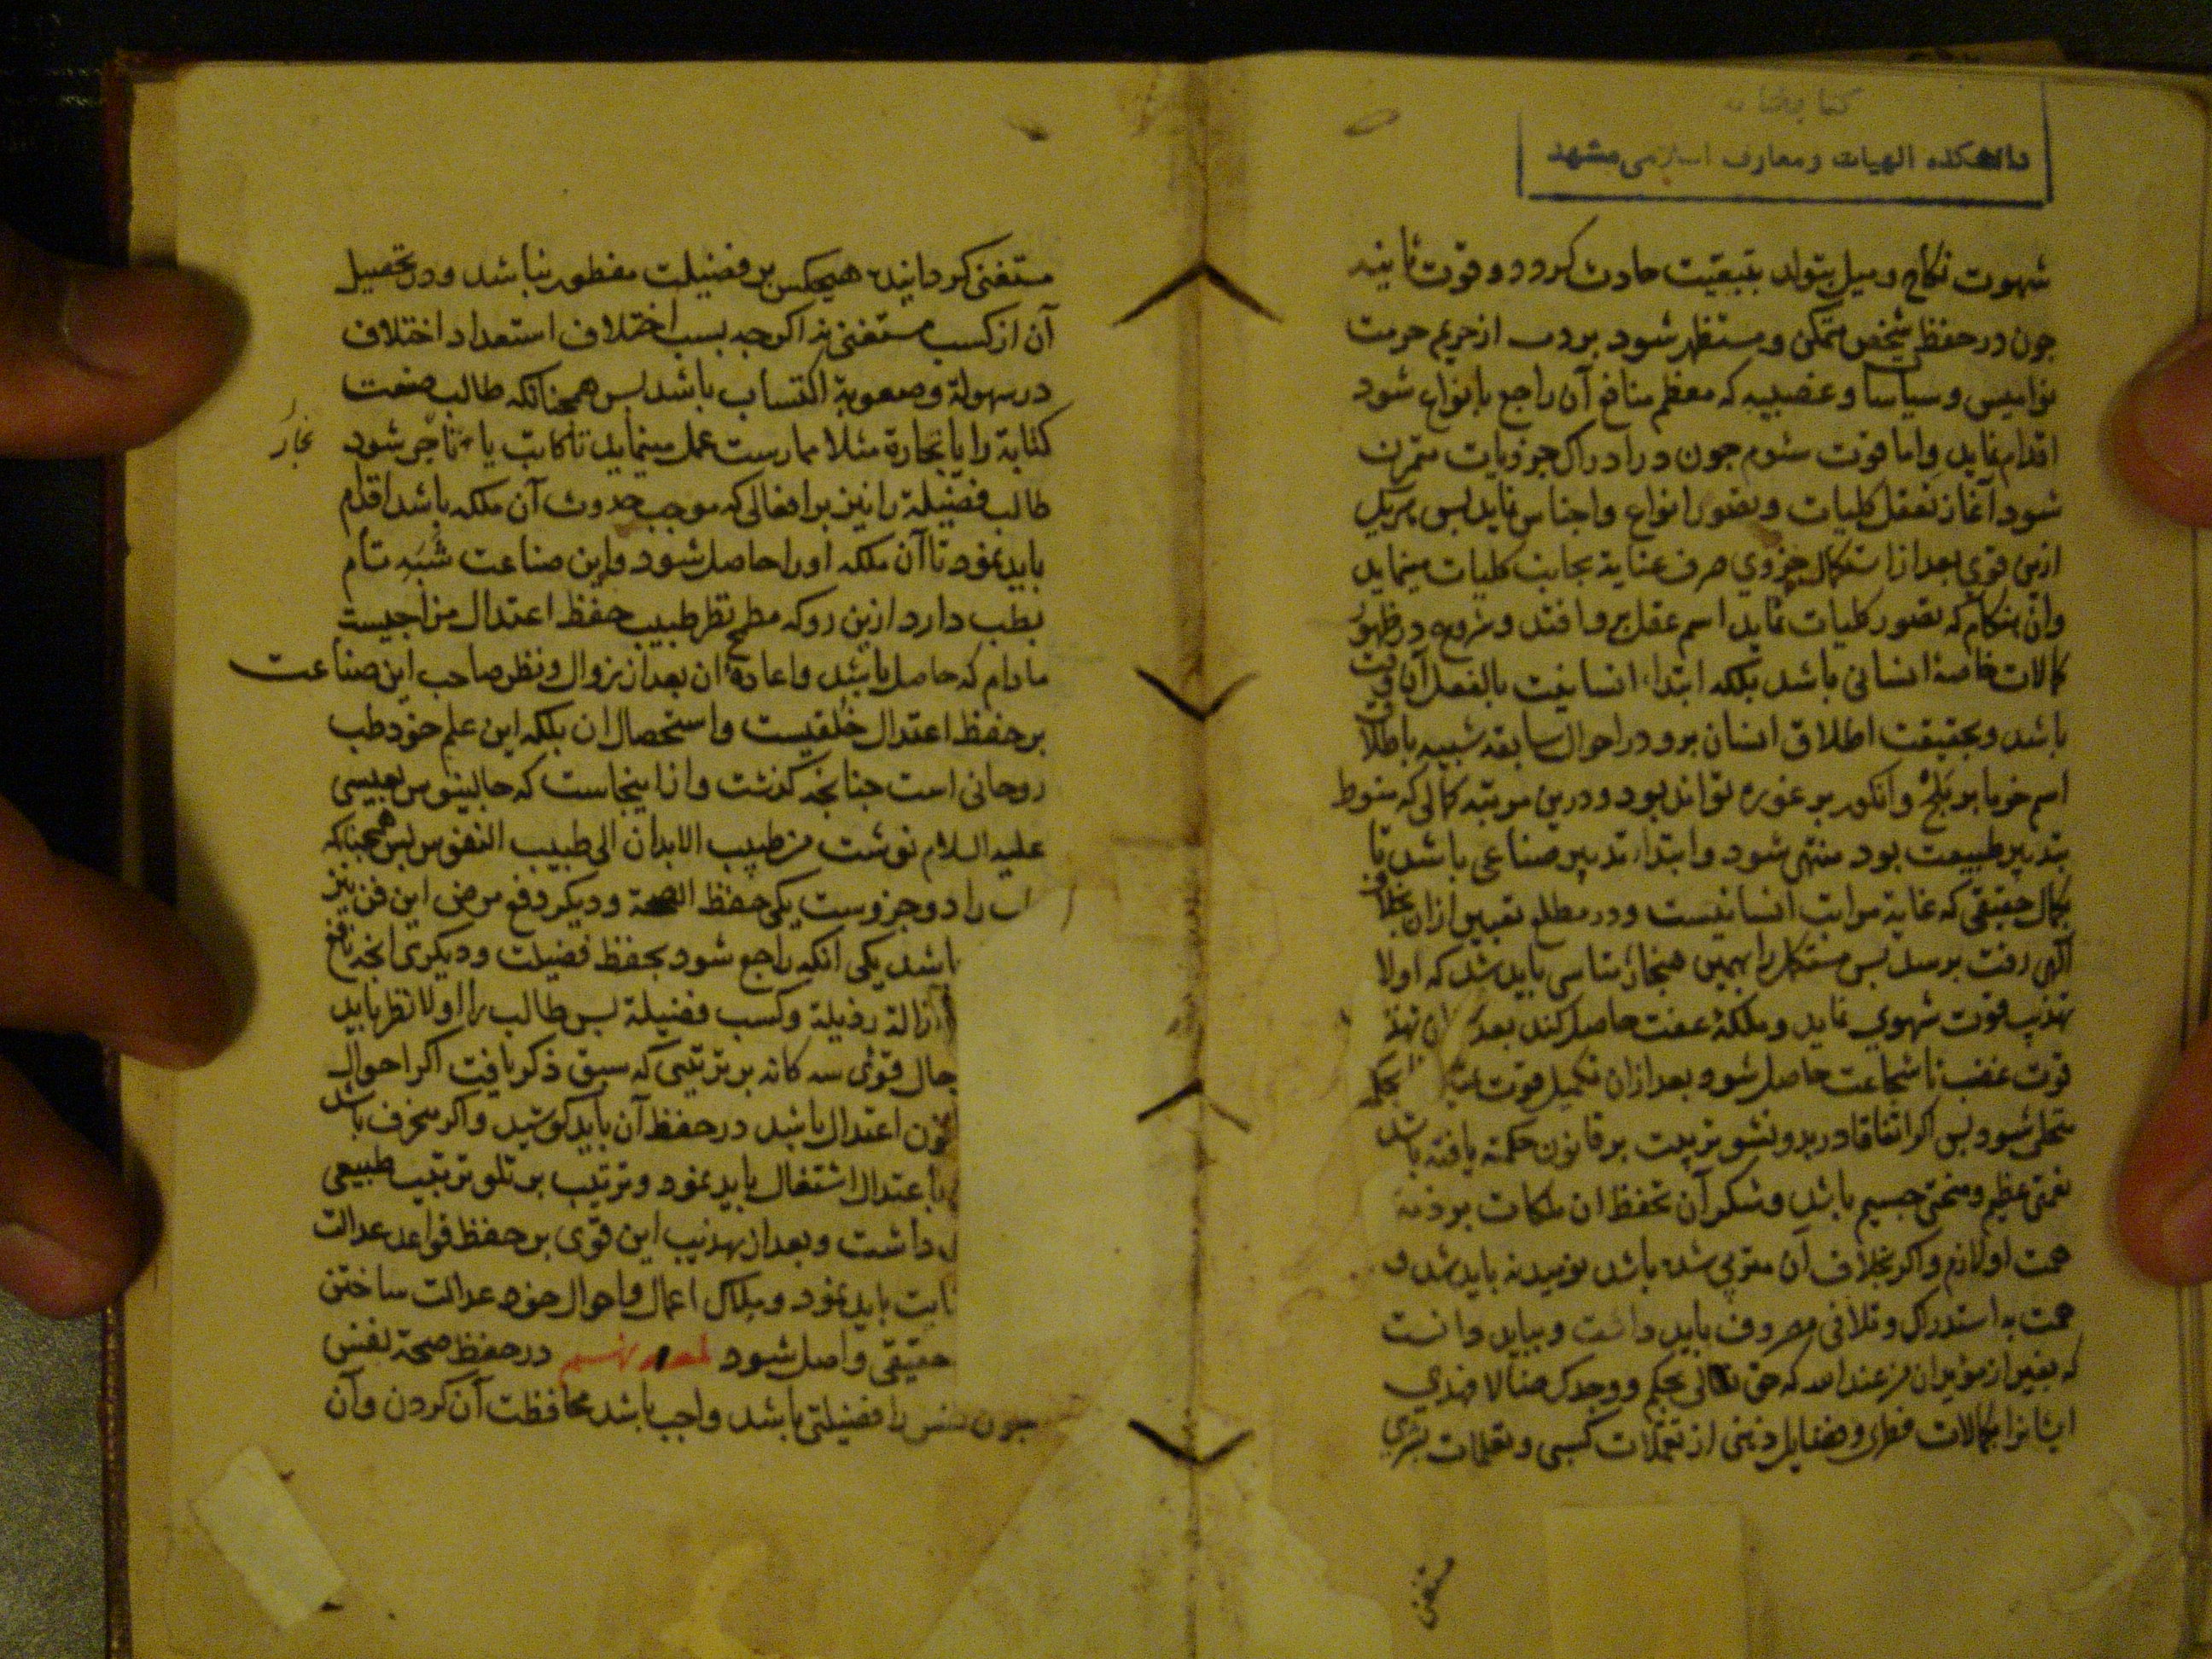 کتابخانه
دانشکده الهیات ومعارف اسلامی مشهد
شهوت نکاح ومیل بتولد بتبعیت حادث کردد وقوت ثانیه
جون در حفظ شخص متمکن ومستظهر شود بردب از حریم حرمت
نوامیس وسیاسا وغضبیه که معظم منافع آن راجع بانواع شود
اقدام نماید واما قوت سئوم جون در ادراک جزویات متمرن
شود آغاز تعقل کلیات وتصور انواع واجناس نماید بس هریک
ازین قوی بعد از استکمال جزوی صرف عنایة بجانب کلیات مینماید
وان هنکام که تصور کلیات نماید اسم عقل برو افتد وشروع در ظهور
کمالات خاصهٔ انسانی باشد بلکه ابتداء انسانیت بالفعل آن وقت
باشد وبحقیقت اطلاق انسان برو در احوال سابقه شبیه باطلاق
اسم خرما بر بلح وانکور بر غوره تواند بود ودرین مرتبه کمالی که منوط
بتدبیر طبیعت بود منتهی شود وابتداء تدبیر صناعی باشد تا
بکمال حقیقی که غایة مراتب انسانیست ودر مطلع تعبیر ازان بخلافت
آلهی رفت برسد بس مستکمل را بهمین هنجار تاسی باید شد که اولا
تهذیب قوت شهوی نماید وملکهٔ عفت حاصل کند بعد ان تهذ
قوت غضب تا شجاعت حاصل شود بعد ازان تکمیل قوت
متحلی شود بس اکر اتفاقا در بدو نشو تربیت بر قانون حکمة یافته باشد
نعمتی عظیم ومنحتی جسیم باشد وشکر آن تحفظ ان ملکات بر ذمه
همت او لازم واکر بخلاف آن متربی شده باشد نومید نه باید شد و
همت به استدراک وتلافی مصروف باید داشت وبباید دانست
که بغیر از مؤیدان من عندالله که حق تعالی بحکم ووجدک ضالا فهدی
ایشانرا بکمالات فطری وفضایل دینی از تعملات کسبی وتعلمات بشری
مستغنی
مستغنی کردانیده هیجکس بر فضیلت مفطور نباشد ودر تحصیل
آن از کسب مستغنی نه اکرجه بسبب اختلاف استعداد اختلاف
در سهولة وصعوبة اکتساب باشد بس همجنانکه طالب صنعت
کتابة را یا نجارة مثلا ممارست عمل مینماید تا کاتب یا تاجر شود
نجار
طالب فضیلة را نیز بر افعالی که موجب حدوث آن ملکه باشد اقدام
باید نمود تا آن ملکه اورا حاصل شود واین صناعت شَبَهِ تام
بطب دارد ازین رو که مطمح نظر طبیب حفظ اعتدال مزاجیست
مادام که حاصل باشد واعادهٔ ان بعد از زوال ونظر صاحب این صناعت
بر حفظ اعتدال خلقیست واستحصال ان بلکه این علم خود طب
روحانی است جنانجه کذشت واز اینجاست که جالینوس بعیسی
علیه السلام نوشت من طبیب الابدان الی طبیب النفوس بس همجنانکه
ب را دو جزوست یکی حفظ الصحة ودیکر دفع مرض این فن نیز
باشد یکی انکه راجع شود بحفظ فضیلت ودیکری انجه نافع
ازالة رذیلة وکسب فضیلة بس طالب را اولا نظر باید
حال قوی سه کانه بر ترتیبی که سبق ذکر یافت اکر احوال
نون اعتدال باشد در حفظ آن باید کوشید واکر منحرف باشد
با عتدال اشتغال باید نمود وترتیب بر تلو ترتیب طبیعی
داشت وبعد از تهذیب این قوی بر حفظ قواعد عدالت
باید نمود وملاک اعمال واحوال خود عدالت ساختن
حقیقی واصل شود لمعه نهم در حفظ صحة نفس
جون نفس را فضیلتی باشد واجب باشد محافظت آن کردن وآن